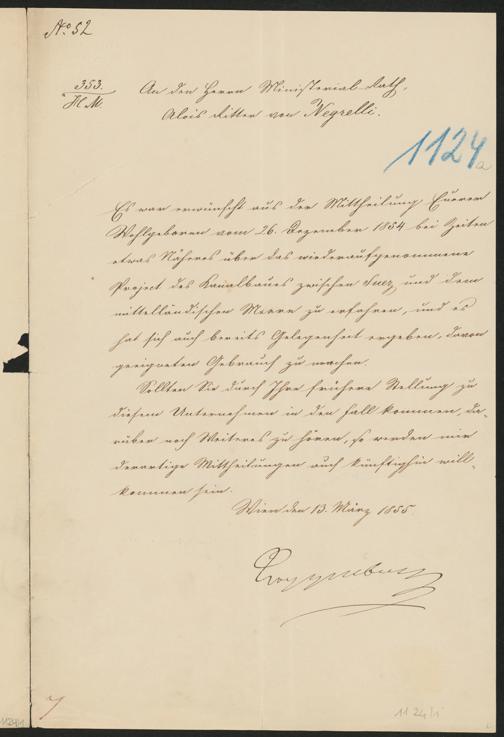 No 52
353.
H. M.
An den Herrn Ministerial-Rath,
Alois Ritter von Negrelli.
1124
a
Es war erwünscht aus der Mittheilung Euerer
Wohlgeboren vom 26. Dezember 1854 bei Zeiten
etwas Näheres über das wiederaufgenommene
Project des Kanalbaues zwischen Suez und dem
mittelländischen Meere zu erfahren, und es
hat sich auch bereits Gelegenheit ergeben, davon
geeigneten Gebrauch zu machen.
Sollten Sie durch Ihre frühere Stellung zu
diesem Unternehmen in den Fall kommen, da-
rüber noch Weiteres zu hören, so werden mir
derartige Mittheilungen auch künftighin will-
kommen sein.
Wien den 13. März 1855.
7
1124/1